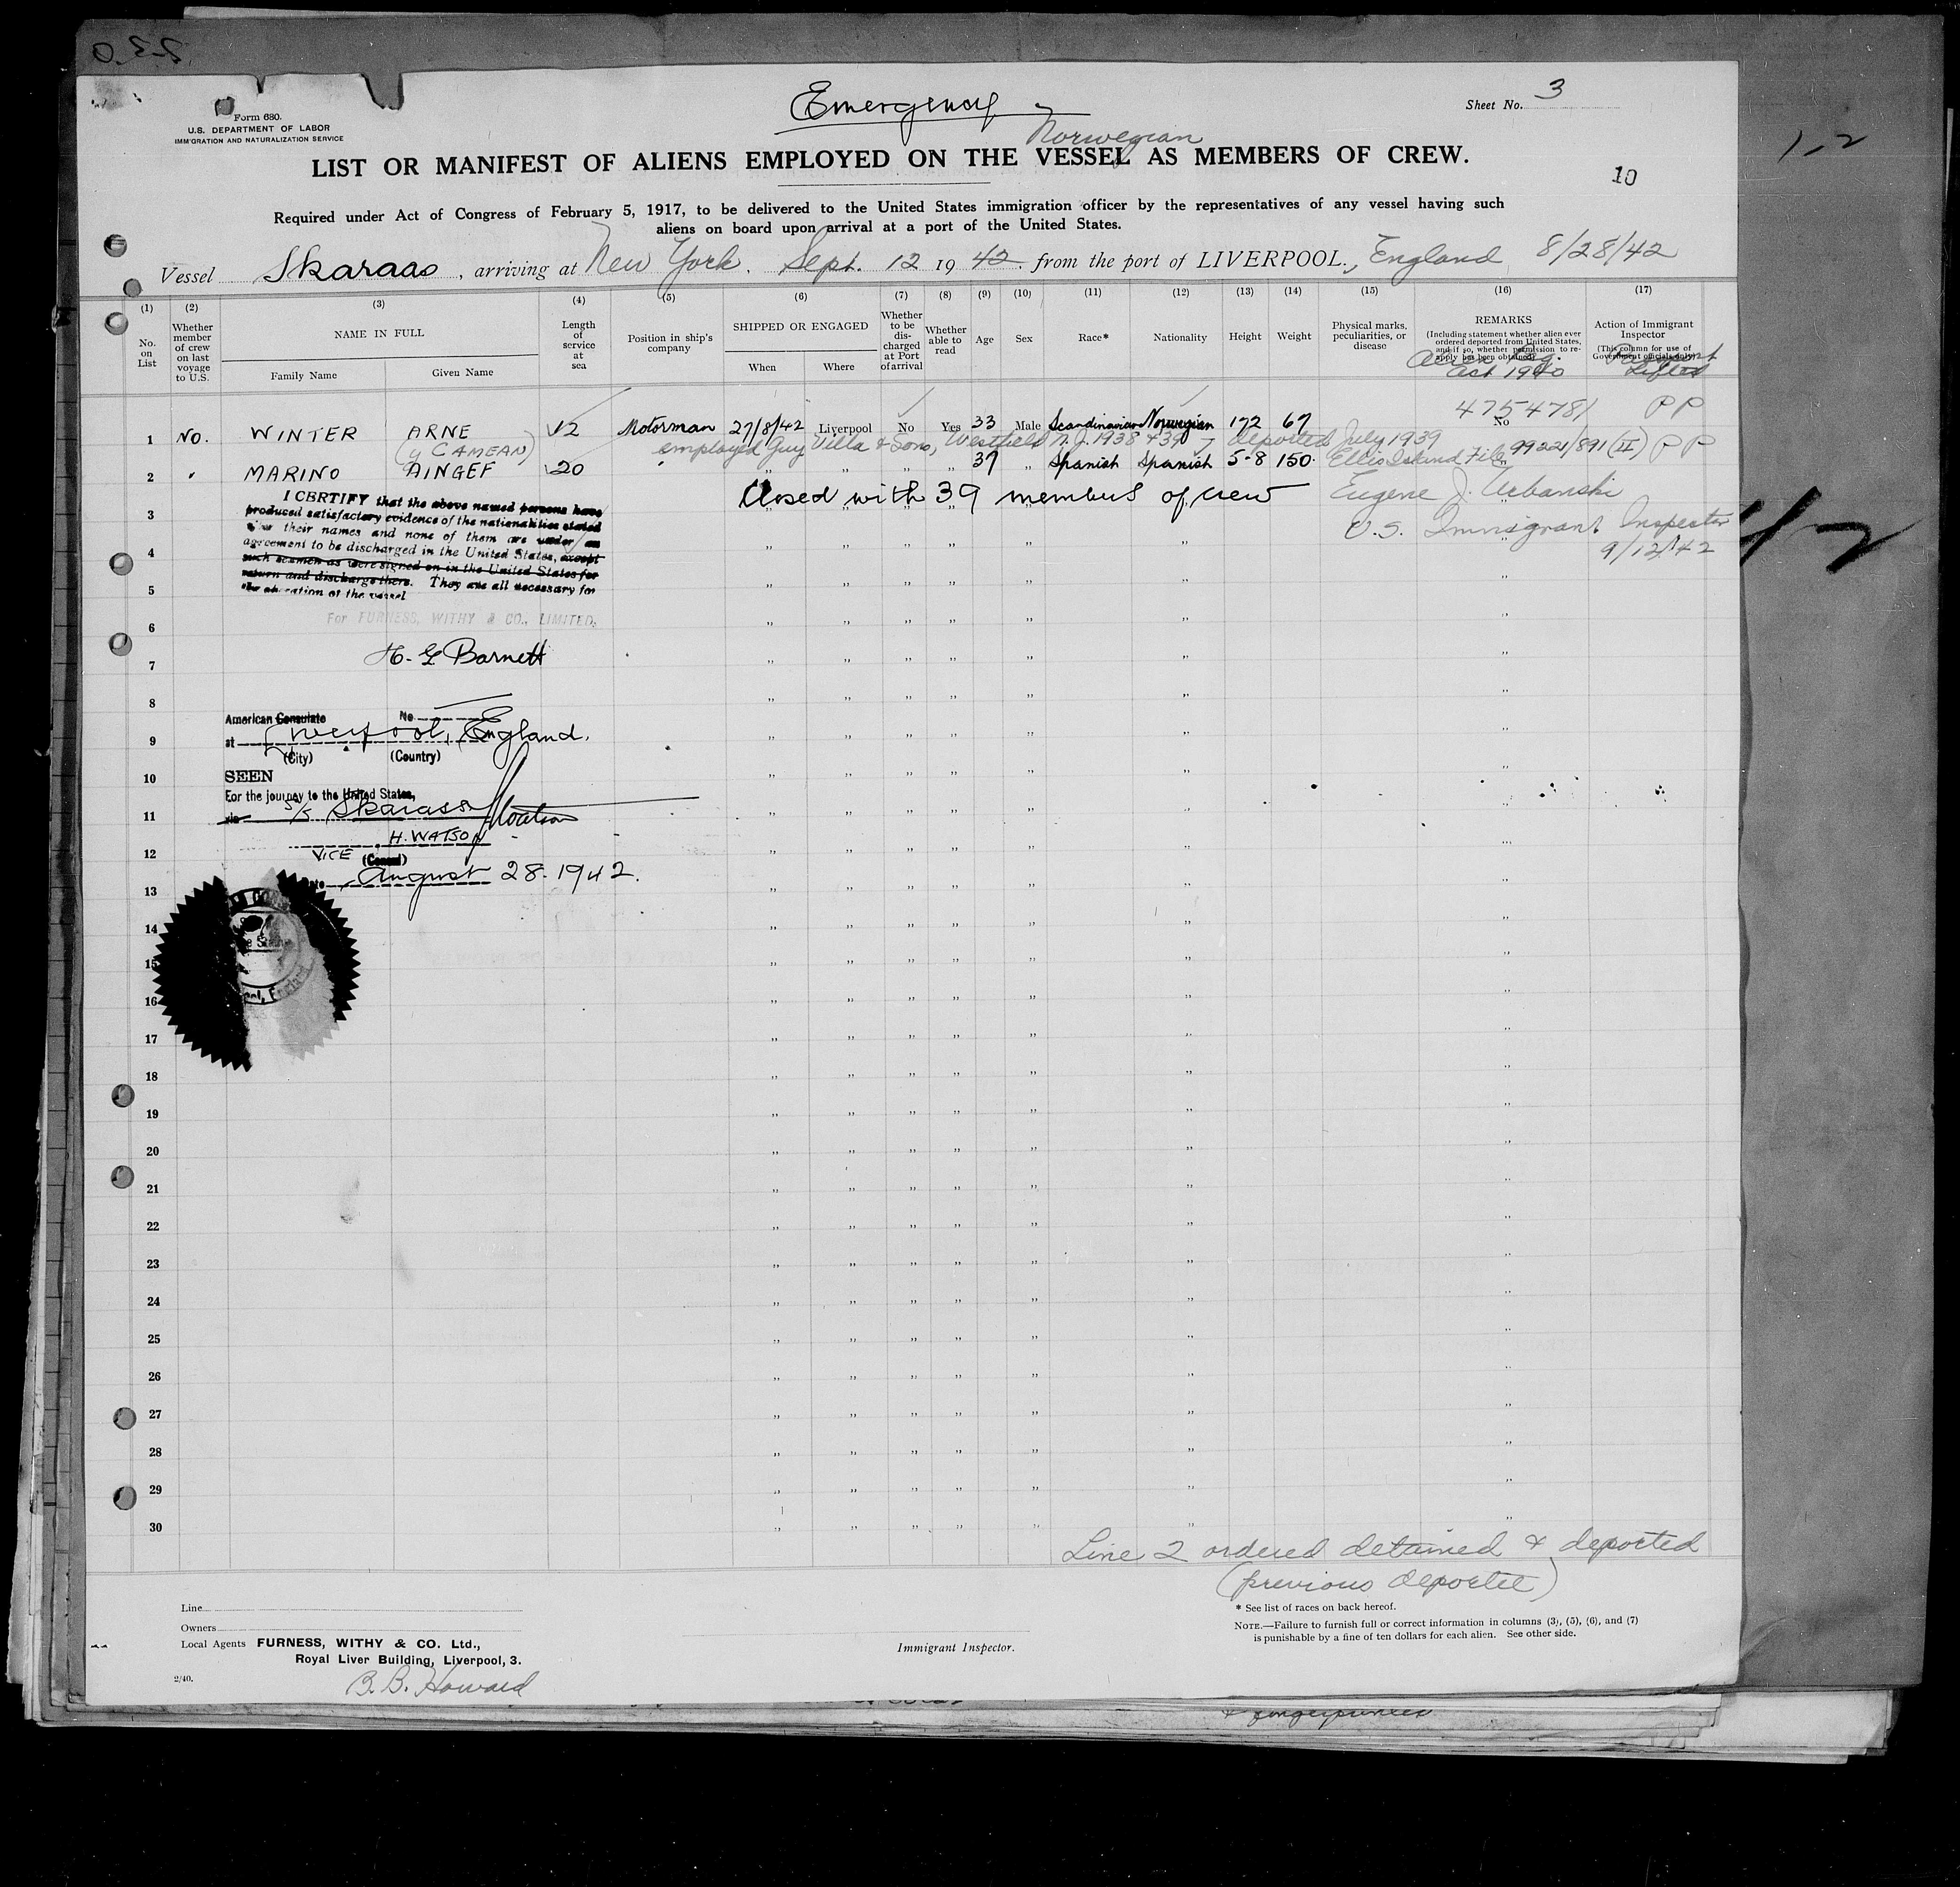 Emergency
Sheet No. 3
Form 680.
U.S. DEPARTMENT OF LABOR
IMMIGRATION AND NATURALIZATION SERVICE
Norwegian
LIST OR MANIFEST OF ALIENS EMPLOYED ON THE VESSEL AS MEMBERS OF CREW.
10
1-2
Required under Act of Congress of February 5, 1917, to be delivered to the United States immigration officer by the representatives of any vessel having such
aliens on board upon arrival at a port of the United States.
Vessel Skaraas, arriving at New York. Sept. 12 19 42. from the port of LIVERPOOL., England 8/28/42
(1) (2) (3) (4) (5) (6) (7) (8) (9) (10) (11) (12) (13) (14) (15) (16) (17)
No. on List
Whether member of crew on last voyage to U.S.
NAME IN FULL
Family Name Given Name
Length of service at sea
Position in ship's company
SHIPPED OR ENGAGED
When Where
Whether to be discharged at Port of arrival
Whether able to read
Age
Sex
Race*
Nationality
Height
Weight
Physical marks, peculiarities, or disease
REMARKS
(Including statement whether alien ever ordered deported from United States, and if so, whether permission to re-apply has been obtained)
Alien Reg. Act 1940
Action of Immigrant Inspector
(This column for use of Government officials only)
Passport Lifted
4754781 PP
1 No. WINTER ARNE 12 Motorman 27/8/42 Liverpool No Yes 33 Male Scandinavian Norwegian 172 67 No
(y CAMEAN) employed Guy Villa & Sons, Westfield N.J. 1938 & 39 deported July 1939
2 " MARINO AINGEF 20 " " " " " 37 " Spanish Spanish 5-8 150. Ellis Island File 99221/891 (II) PP
Closed with 39 members of crew Eugene J. Urbanski
U.S. Immigrant Inspector
9/12/42
I CERTIFY that the above named persons have
produced satisfactory evidence of the nationalities stated
their names and none of them are under an
agreement to be discharged in the United States, except
such seamen as were signed on in the United States for
return and discharge there. They are all necessary for
the operation of the vessel
For FURNESS, WITHY & CO., LIMITED,
H. G Barnett
3
4
5
6
7
8
9
10
11
12
13
14
15
16
17
18
19
20
21
22
23
24
25
26
27
28
29
30
American Consulate No
at Liverpool, England.
(City) (Country)
SEEN
For the journey to the United States,
via S/S Skaraas HWatson
H. WATSON
VICE (Consul)
Date August 28. 1942.
Line 2 ordered detained & deported
(previous deportee)
* See list of races on back hereof.
NOTE.—Failure to furnish full or correct information in columns (3), (5), (6), and (7)
is punishable by a fine of ten dollars for each alien. See other side.
Line
Owners
Local Agents FURNESS, WITHY & CO. Ltd.,
Royal Liver Building, Liverpool, 3.
Immigrant Inspector.
2/40.
B.B. Howard